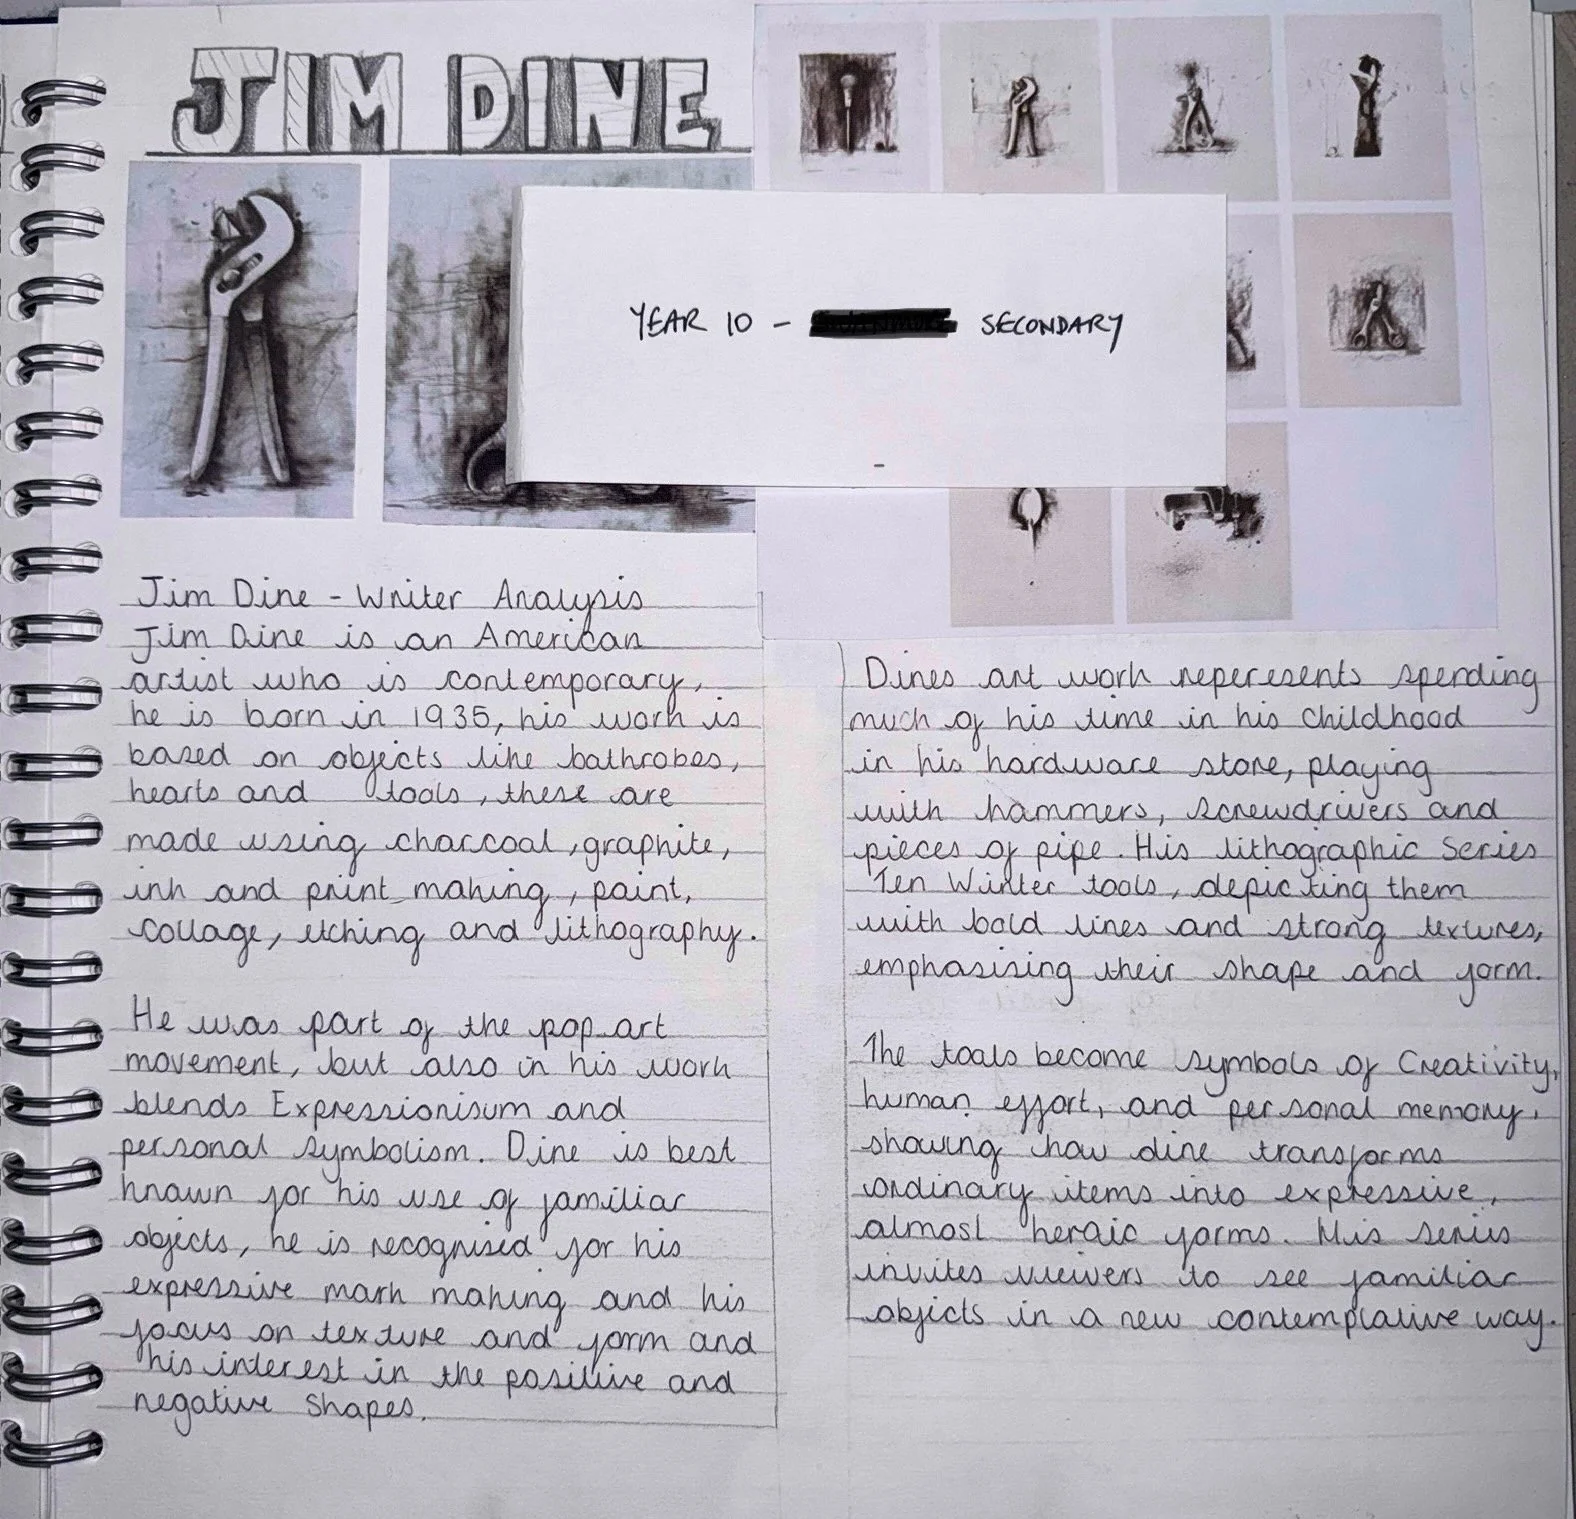 JIM DINE
YEAR 10 - SECONDARY
Jim Dine - Writer Analysis
Jim Dine is an American
artist who is contemporary,
he is born in 1935, his work is
based on objects like bathrobes,
hearts and tools, these are
made using charcoal, graphite,
ink and print making, paint,
collage, etching and lithography.
He was part of the pop art
movement, but also in his work
blends Expressionisum and
personal symbolism. Dine is best
known for his use of familiar
objects, he is recognised for his
expressive mark making and his
focus on texture and form and
his interest in the positive and
negative shapes.
Dines art work reperesents spending
much of his time in his childhood
in his hardware store, playing
with hammers, screwdrivers and
pieces of pipe. His lithographic Series
Ten Winter tools, depicting them
with bold lines and strong textures,
emphasising their shape and form.
The tools become symbols of Creativity,
human effort, and personal memory,
showing how dine transforms
ordinary items into expressive,
almost heroic forms. His series
invites viewers to see familiar
objects in a new contemplative way.